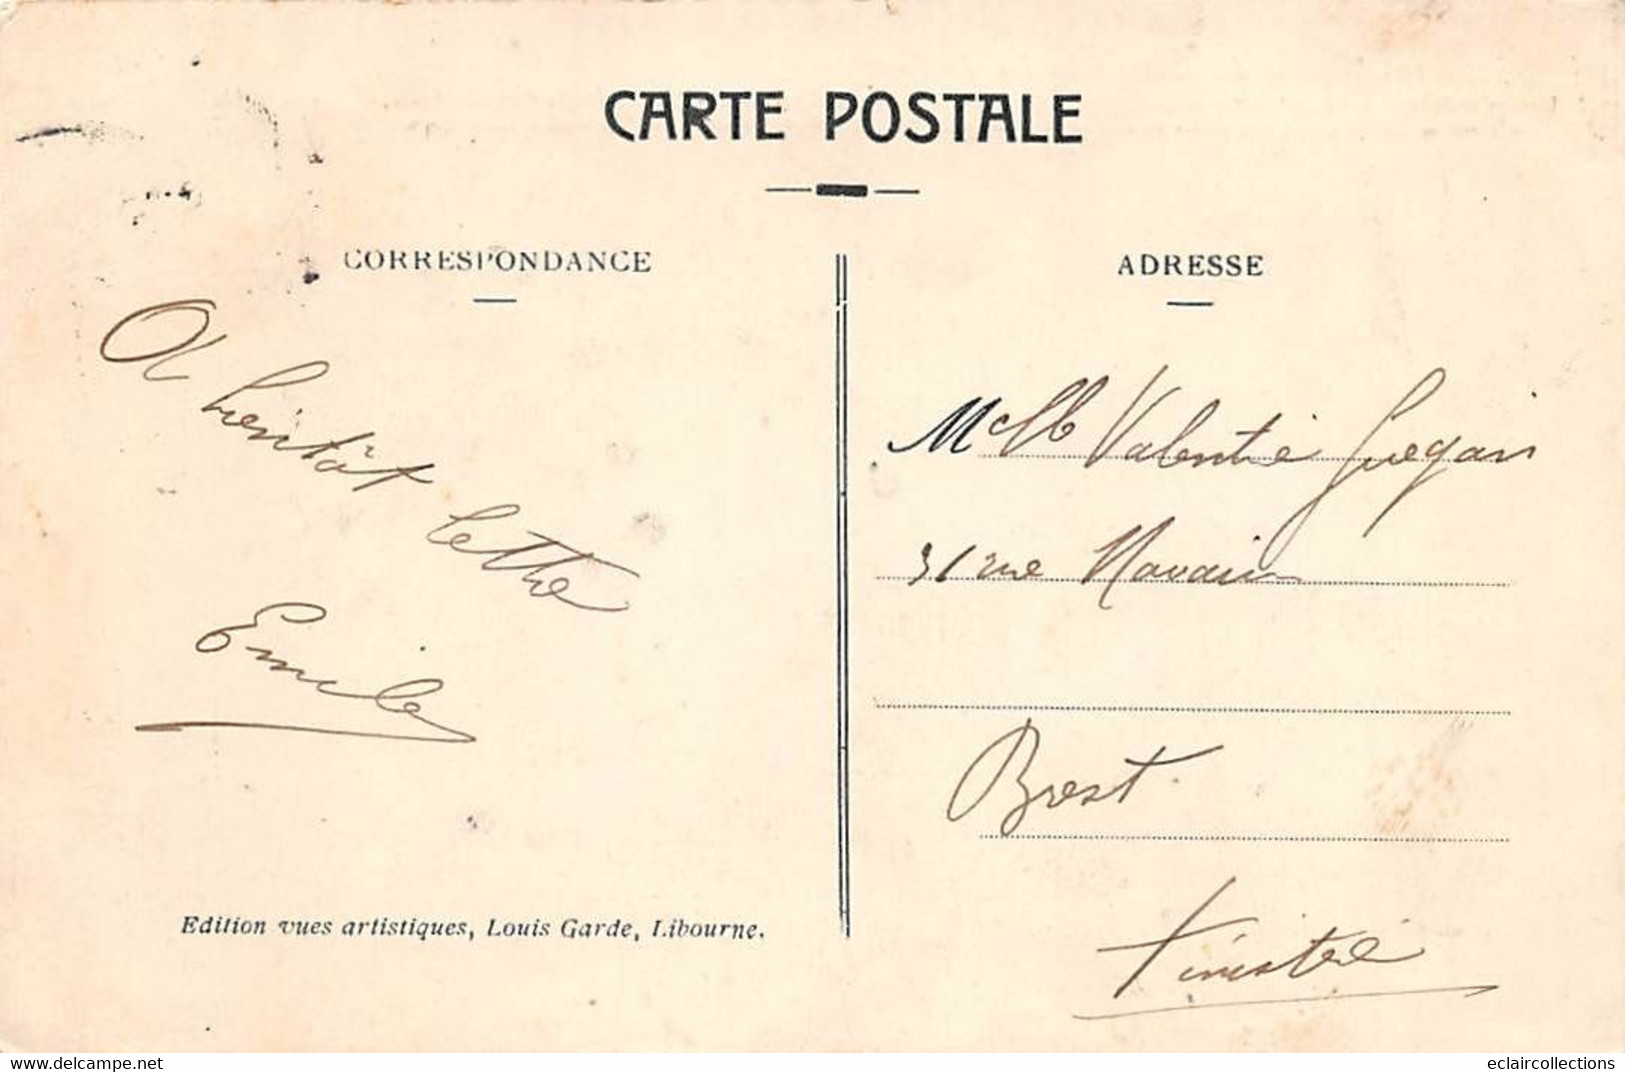 CARTE POSTALE
CORRESPONDANCE
A bientôt lettre
Emile
Edition vues artistiques, Louis Garde, Libourne.
ADRESSE
Melle Valentine Guegan
31 rue Navarin
Brest
Finistère
delcampe.net
eclaircollections